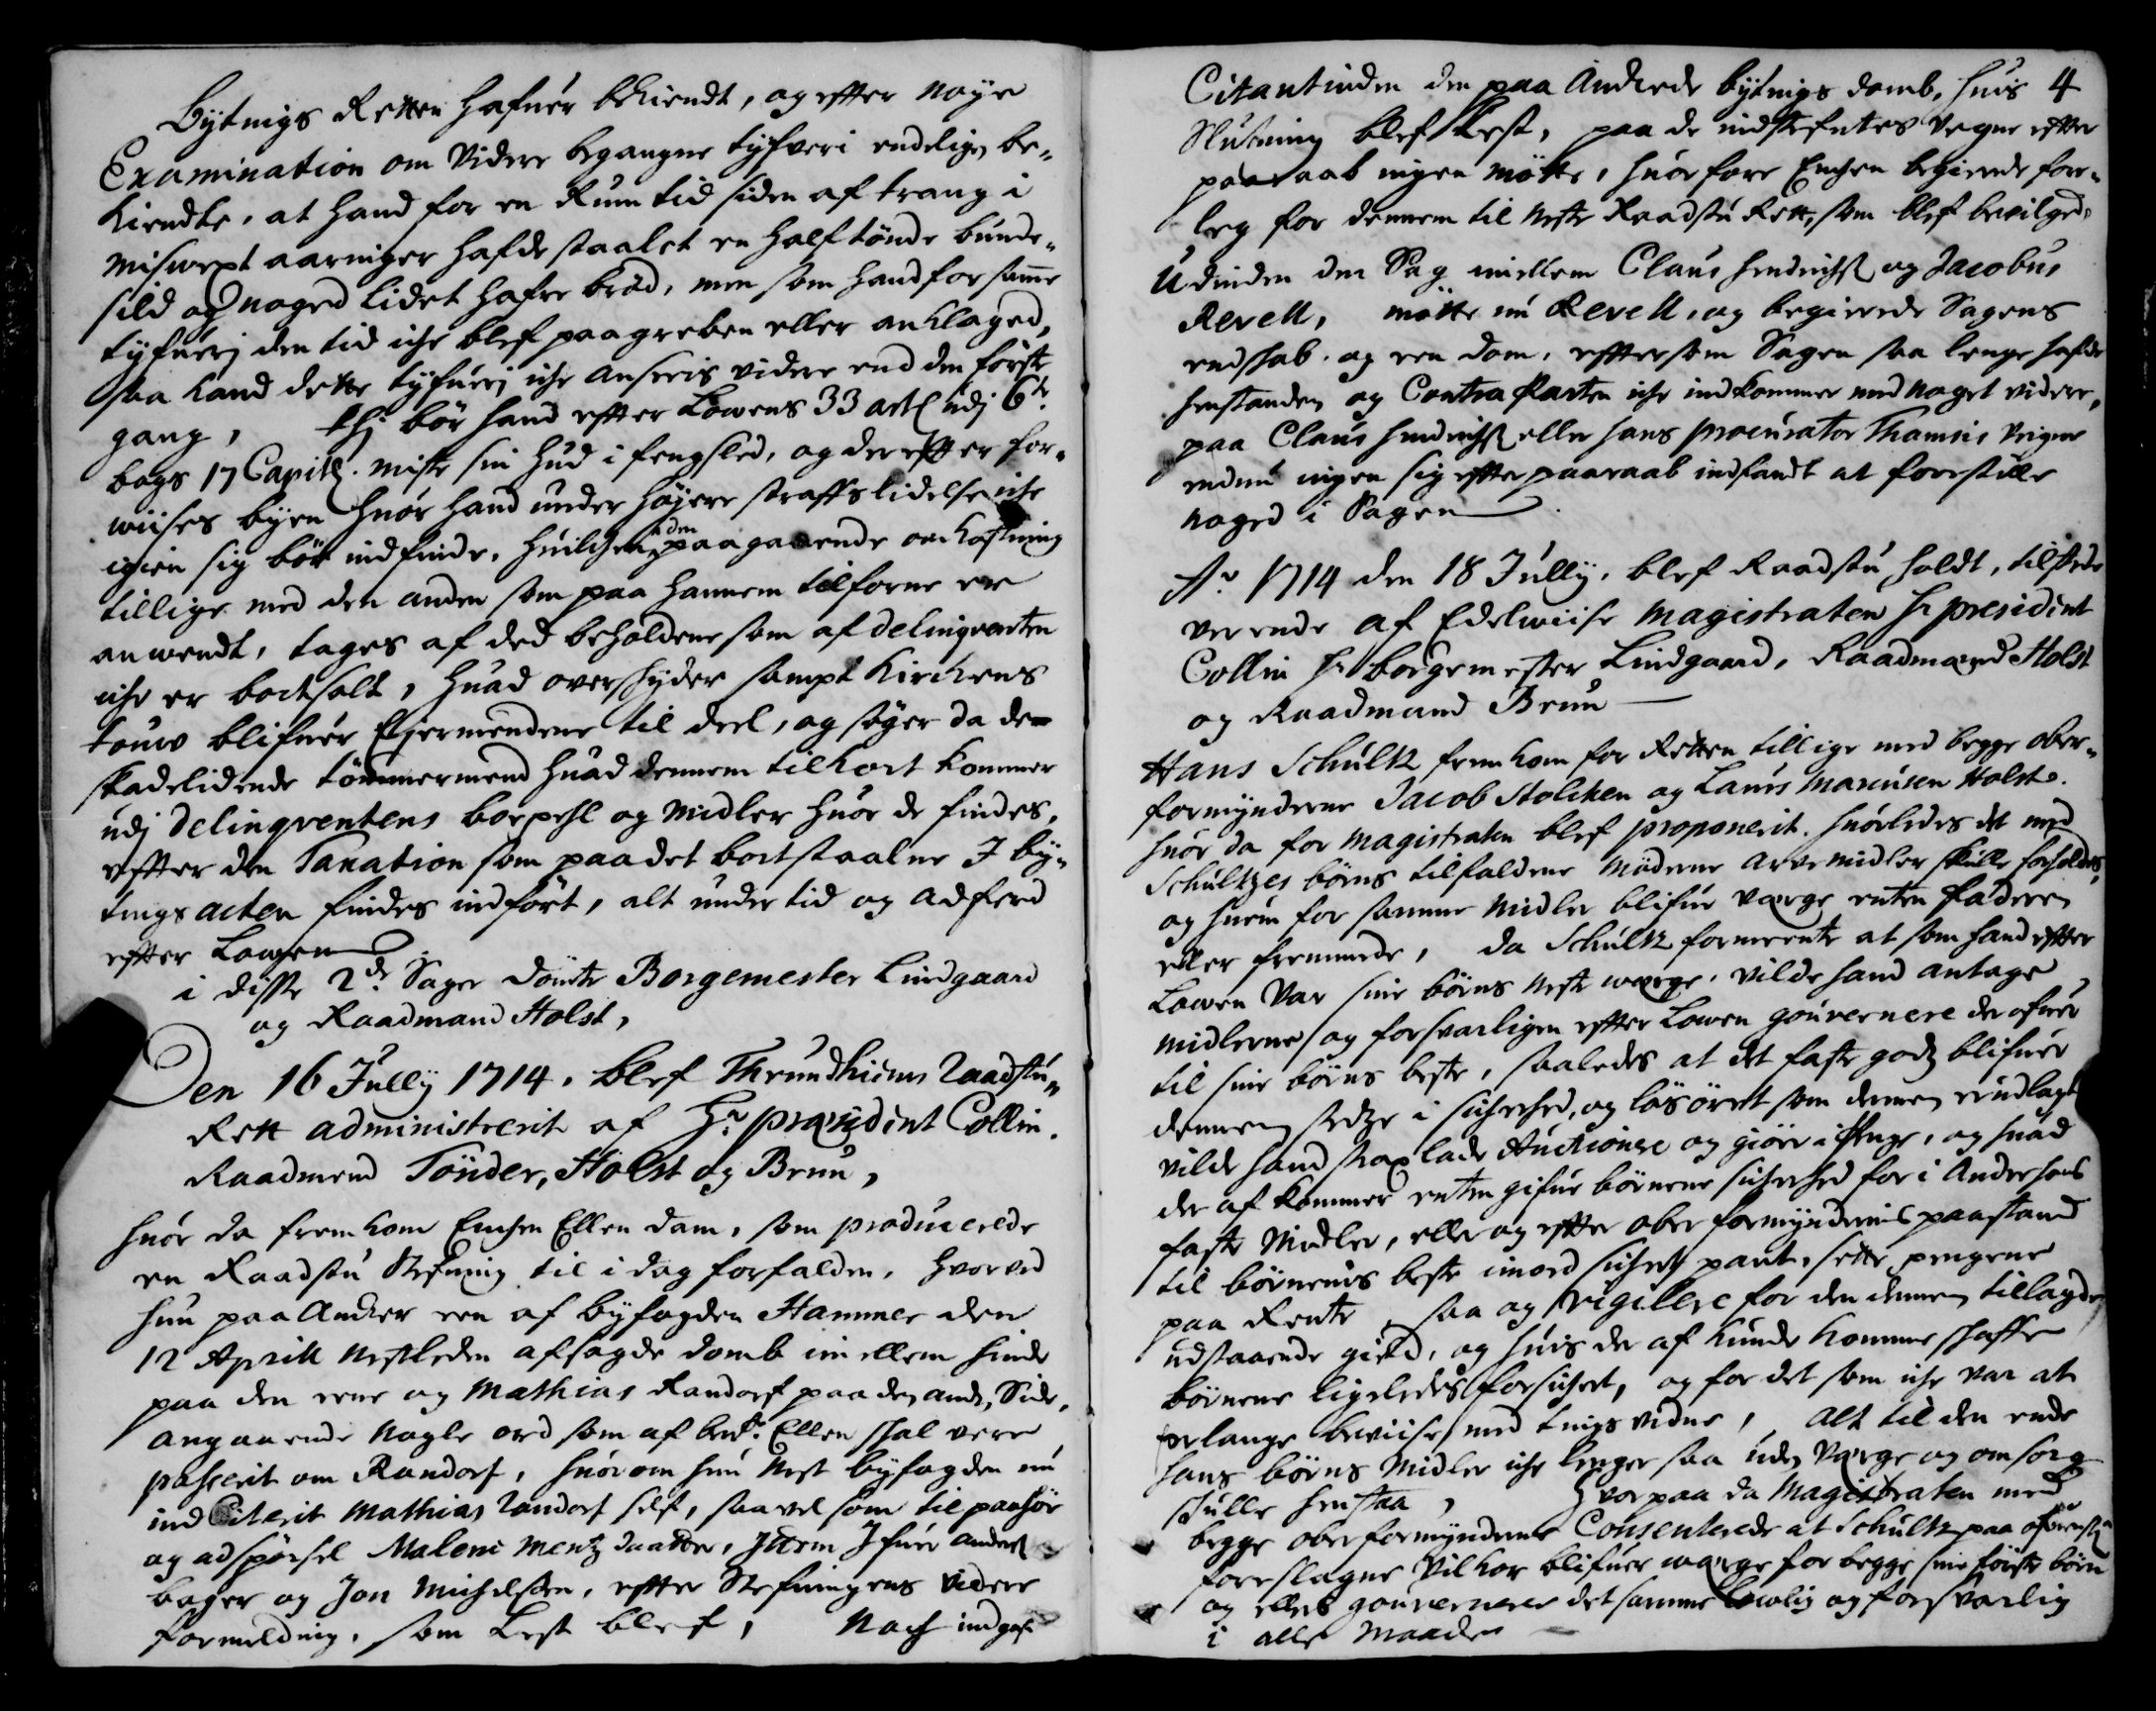 bytings Retten hafuer bekiendt, og efter nøye
Examination om videre begangne tyfveri endelig be„
kiendte, at hand for en Rum tid siden af trang i
miswext aaringer hafde staalet en half tønde bunde„
sild og noged lidet hafre brød, men som hand for samme
tyfueri den tid iche blef paagreben eller anklaged,
saa kand dette tyfuerj iche anseeis videre end den første
gang, thj bør hand efter Lowens 33 artl udj 6te
bogs 17 Capitl. miste sin hud i fengsled, og derefter for„
wiises byen huor hand under høyere straffs lidelse iche
igien sig bør indfinde, huilchen den paagaaende omkostning
tillige med den anden som paa hannem tilforne er
anwendt, tages af ded beholdene som af delinqventen
iche er bortsolt, huad overskyder sampt Kirchens
touw blifuer Ejermendene til deel, og søger da de
skadelidende tømmermend huad dennem tilkort kommer
udj Delinqventens boepehl og midler huor de findes,
efter den Taxation som paa det bortstaalne I by„
tings acten findes indført, alt under tid og adferd
efter Lowen
i disse 2de Sager dømte Borgemester Lindgaard
og Raadmand Holst,
Den 16 Jully 1714, blef Thrundhiems Raadstu„
Rett administrerit af Hr. præsident Collin.
Raadmend Tønder, Holst og Brun,
huor da fremkom Enchen Ellen dam, som producerede
en Raadstu Stefning til i dag forfalden, hvorved
hun paa Ancker een af byfogden Hammer den
12 Aprill nestleden afsagde domb imellem hinde
paa den eene og Mathias Randorf paa den anden Side,
angaaende nogle ord som af bemte Ellen skal vere
passerit om Randorf, huorom hun nest byfogden nu
ind Citerit Mathias Randorf self, saavel som til paahør
og adspørsel Malene Mentz daatter, Item Ifuer Anders
bager og Jon Michelsen, efter Stefningens videre
formelding, som Lest blef, Noch indgaf
Citantinden den paa Anckede bytings domb, huis 4
Slutning blef Lest, paa de indstefntes vegne efter
paaraab ingen møtte, huorfore Enchen begierede fore„
leg for dennem til neste Raadstu Rett, som blef bevilged,
Udinden den Sag imellem Claus Hendrichs og Jacobus
Revell, møtte nu Revell, og begierede Sagens
endskab, og een dom, eftersom Sagen saa lenge hafde
henstanden og Contra Parten iche indkommer med noget videre,
paa Claus Hendrichs eller hans procurator Thamsis veigne
endnu ingen sig efter paaraab indfandt at forestille
noged i Sagen
Ao 1714 den 18 Jully, blef Raadstu holdt, tilstede
verende af Edelwiise Magistraten Hr president
Collin Hr borgemester Lindgaard, Raadmand Holst
og Raadmand Brun
Hans Schultz fremkom for Retten tillige med begge ober„
formynderne Jacob Stolchen og Laurs Marcusen Holst.
huor da for magistraten blef proponerit, huorledes det med
Schultzes børns tilfaldene møderne arvemidler skulle forholdes,
og huem for samme midler blifue værge enten faderen
eller fremmede, da Schultz formeente at som hand efter
Lowen var sine børns neste werge, vilde hand antage
midlerne og forsvarligen efter Lowen gouvernere der ofuer
til sine børns beste, saaledes at det faste godz blifuer
dennem sedtze i sicherhed, og løsøret som dennem er udlagt
vilde hand strax lade Auctionere og giøre i Penge, og huad
der af kommer enten gifue børnene sicherhed for i Anderhans
faste midler, eller og efter ober formyndernis paastand
til børnenis beste imod sichert pant, sette pengene
paa Rente, saa og vigilere for den dennem tillagde
udstaaende gield, og huis der af kunde komme skaffe
børnene ligeledes forsichert, og for det som iche var at
erlange beviise med tings vidne, Alt til den ende
hans børns midler iche lenger saa uden værge og omsorg
skulle henstaa, Hvorpaa da Magistraten med
begge oberformynderne Consenterede at Schultz paa ofuenstl
foreslagne vilkor blifuer werge for begge sine første børn
og ellers gouvernerer det samme lovlig og forsvarlig
i alle Maader